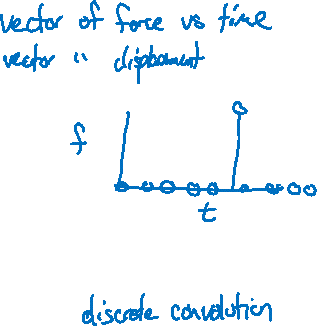 vector of force vs time
vector " displacment
f
t
discrete convolution